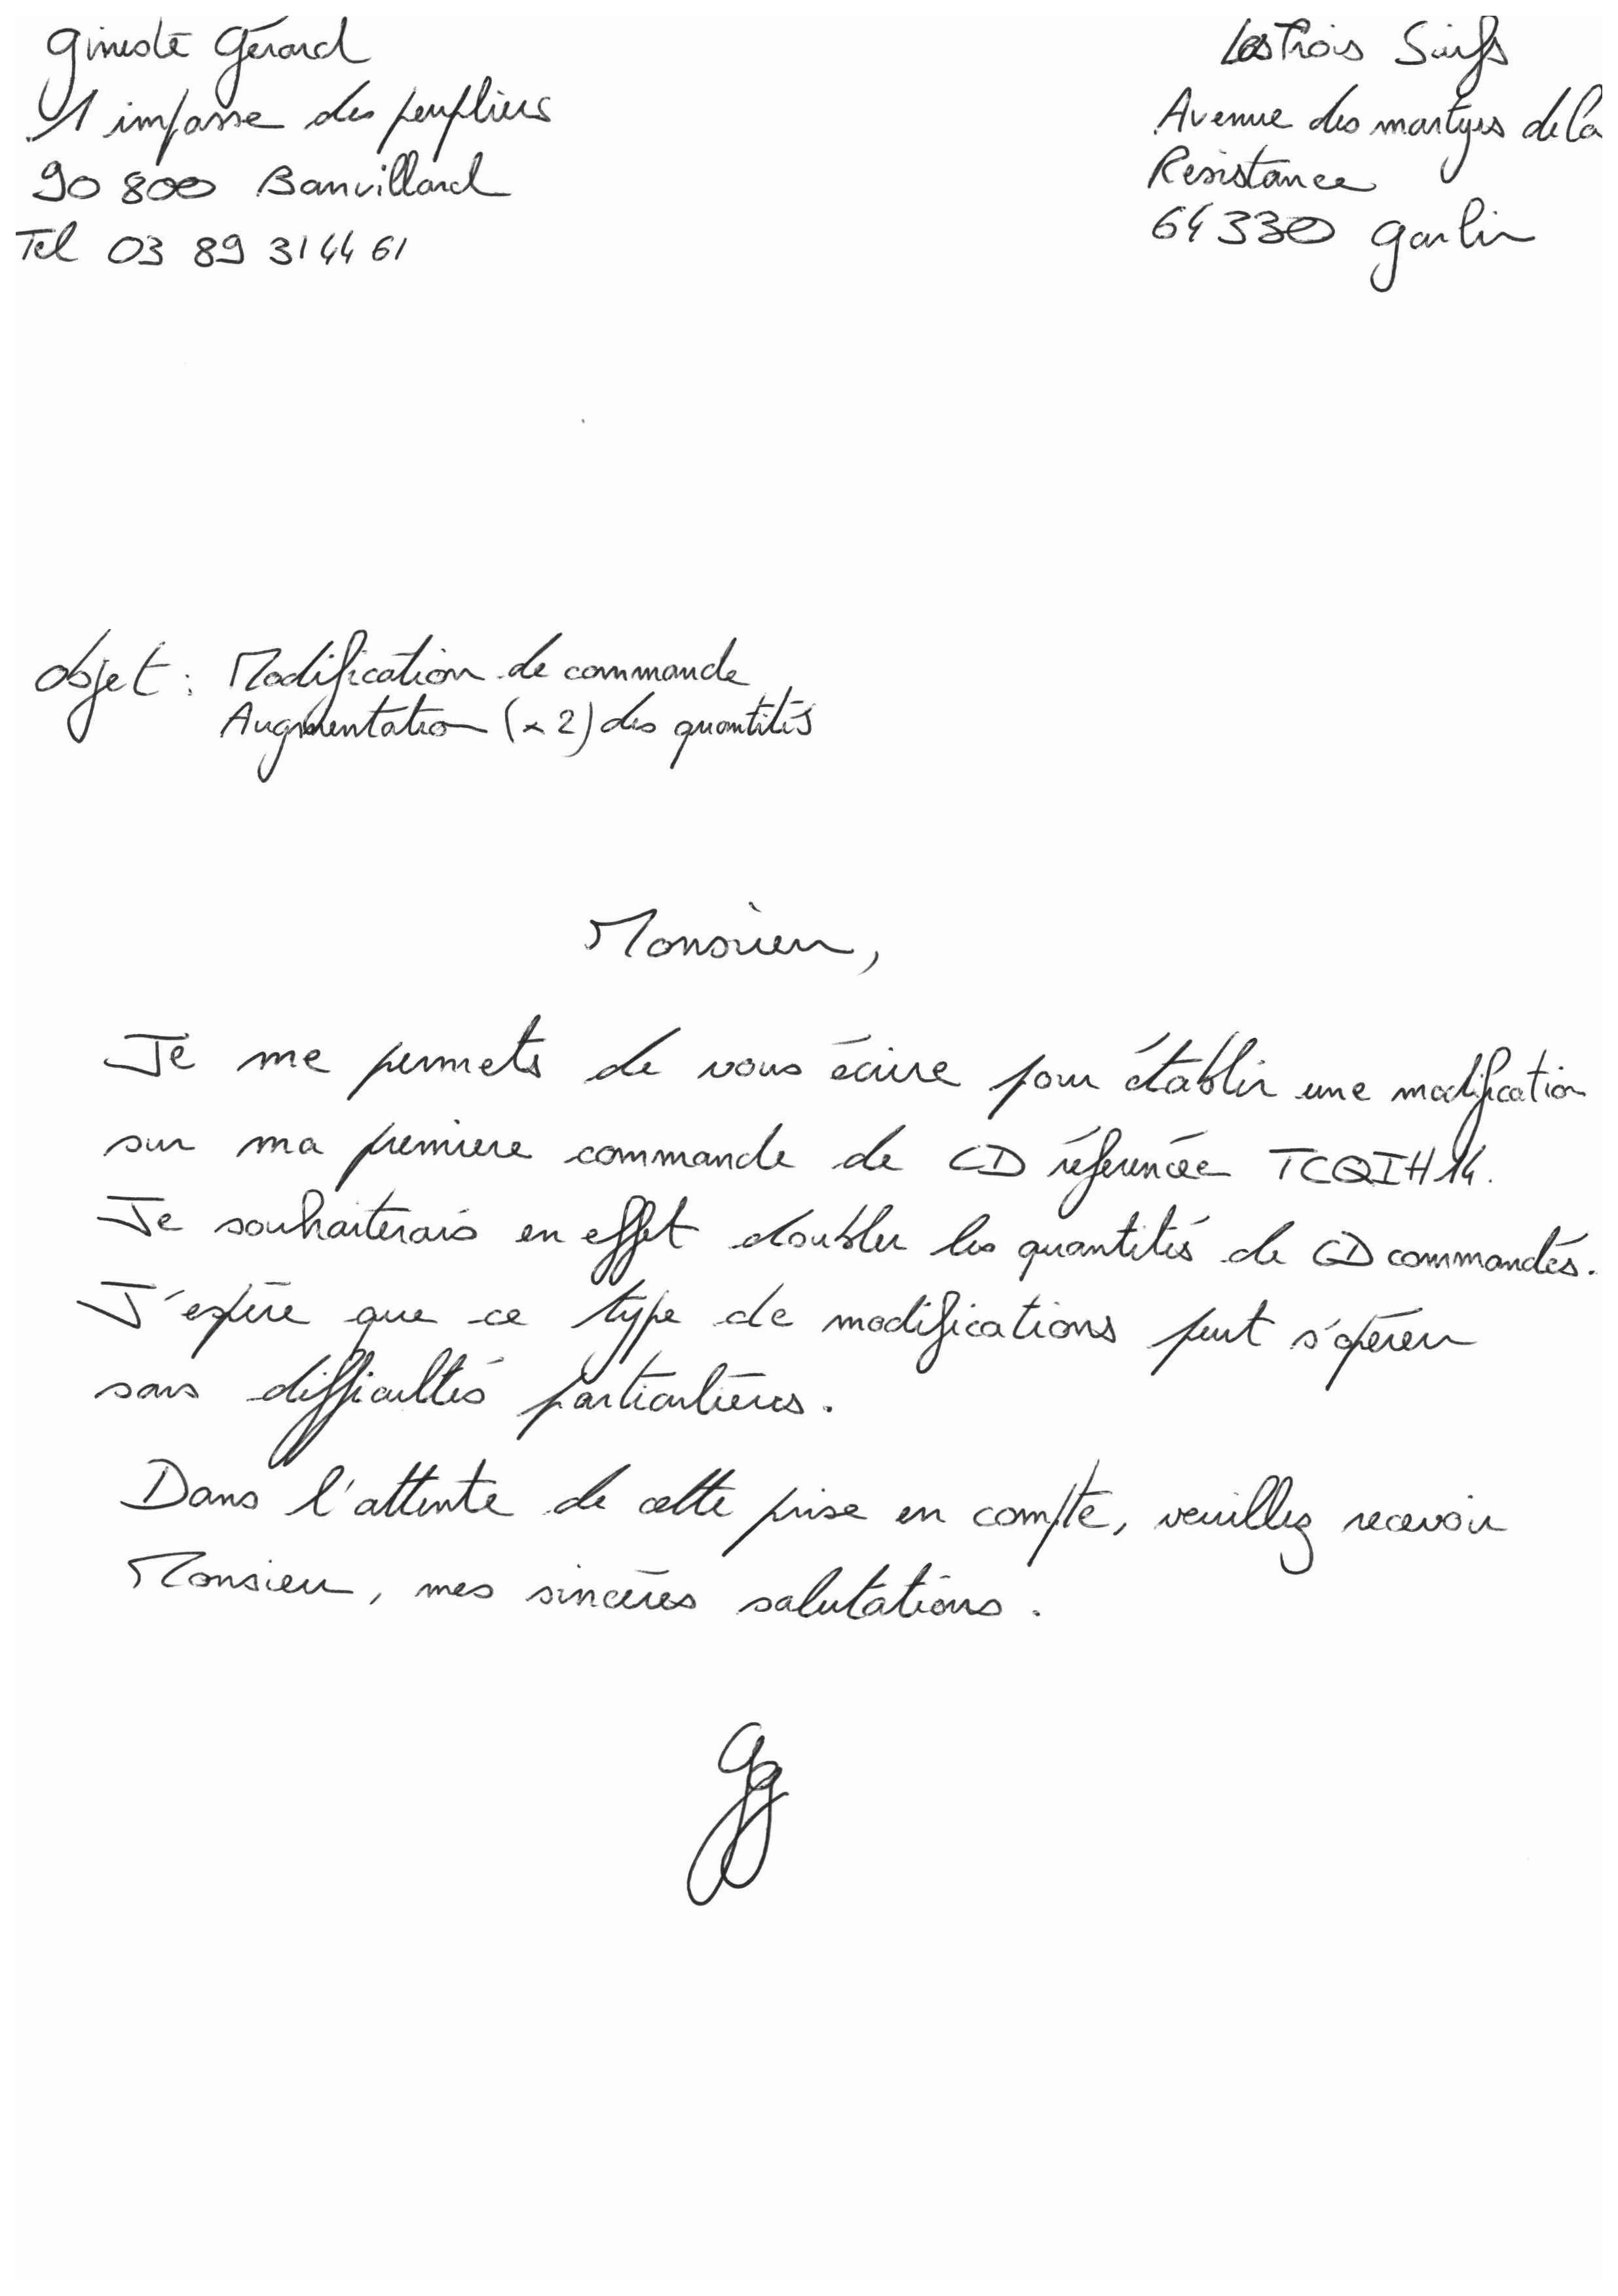 Gineste Gérard
1 impasse des peupliers
90 800 Banvillard
Tel 03 89 31 44 61
Les Trois Suifs
Avenue des martyrs de la
Resistance
64 330 Garlin
Objet : Modification de commande
Augmentation (x 2) des quantités
Monsieur,
Je me permets de vous écrire pour établir une modification
sur ma premiere commande de CD référencée TCQIH14.
Je souhaiterais en effet doubler les quantités de CD commandés.
J'espère que ce type de modifications peut s'opérer
sans difficultés particulières.
Dans l'attente de cette prise en compte, veuillez recevoir
Monsieur, mes sincères salutations.
GG